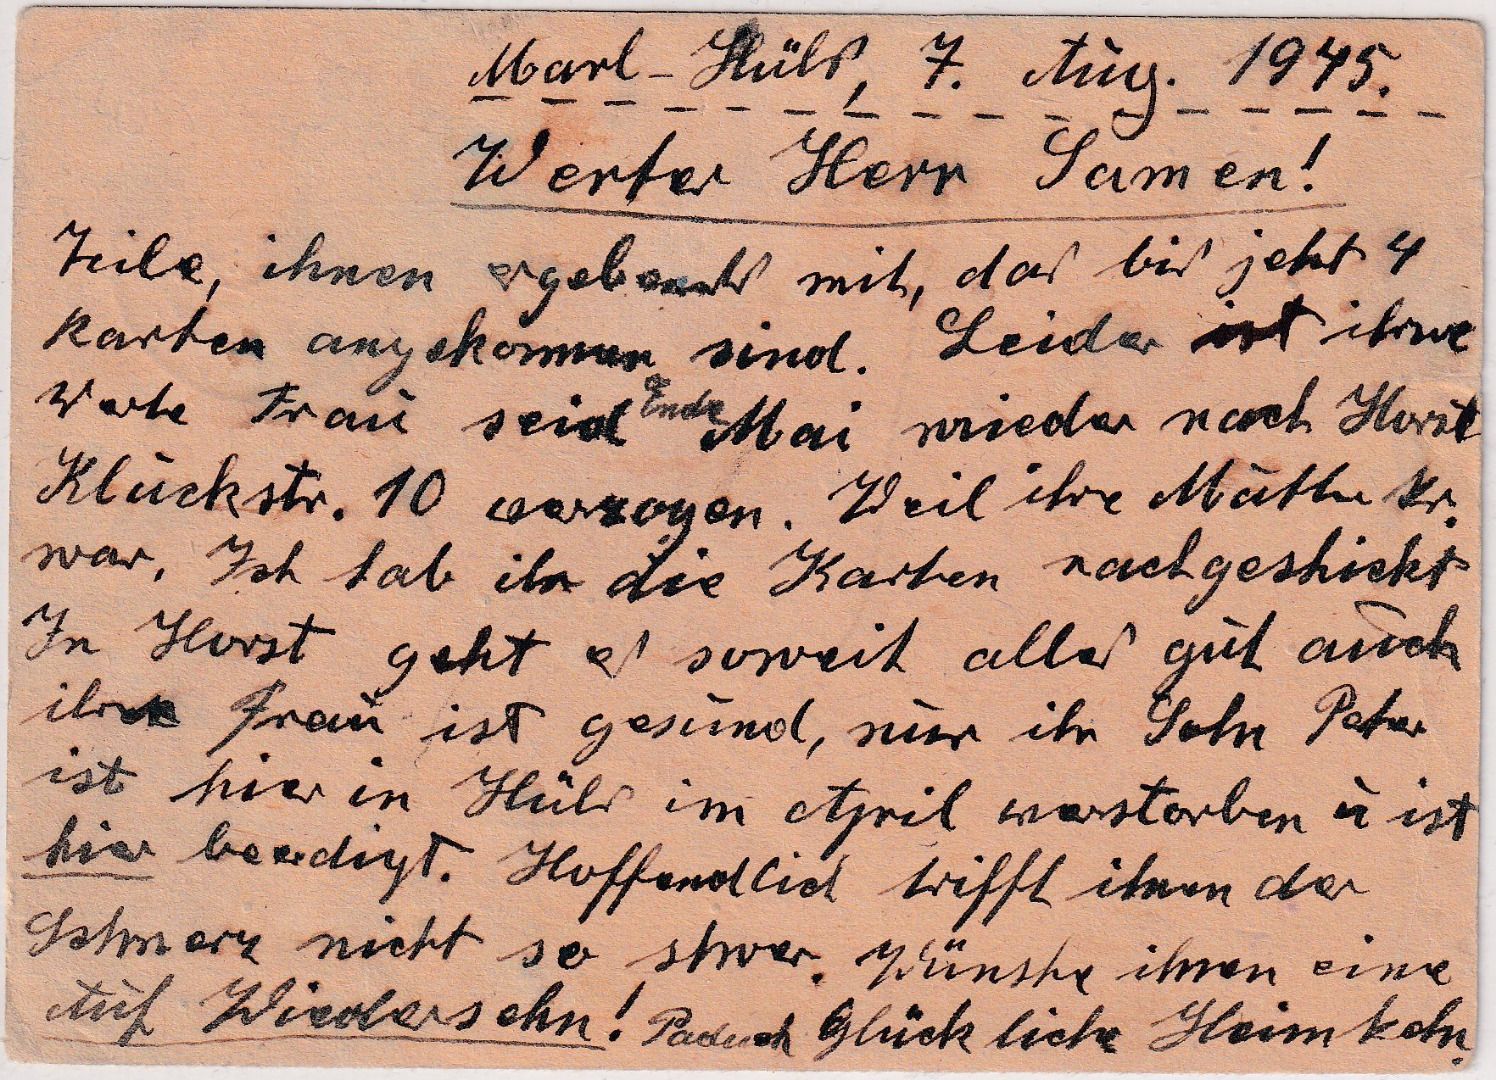 Marl-Hüls, 7. Aug. 1945.
Werter Herr Samen!
Teile, ihnen ergebenst mit, das bis jetzt 4
Karten angekommen sind. Leider ist ihrwe
Werte Frau seid Ende Mai wieder nach Horst
Klückstr. 10 verzogen. Weil ihre Mutter kr.
war. Ich hab ihr die Karten nachgeshickt
In Horst geht es soweit alles gut auch
ihre Frau ist gesund, nur ihr Sohn Peter
ist hier in Hüls im April verstorben u ist
hier beerdigt. Hoffendlich trifft ihnen der
Schmerz nicht so shwer. Wünshe ihnen eine
Auf Wiedersehn! Paduch Glückliche Heimkehr.